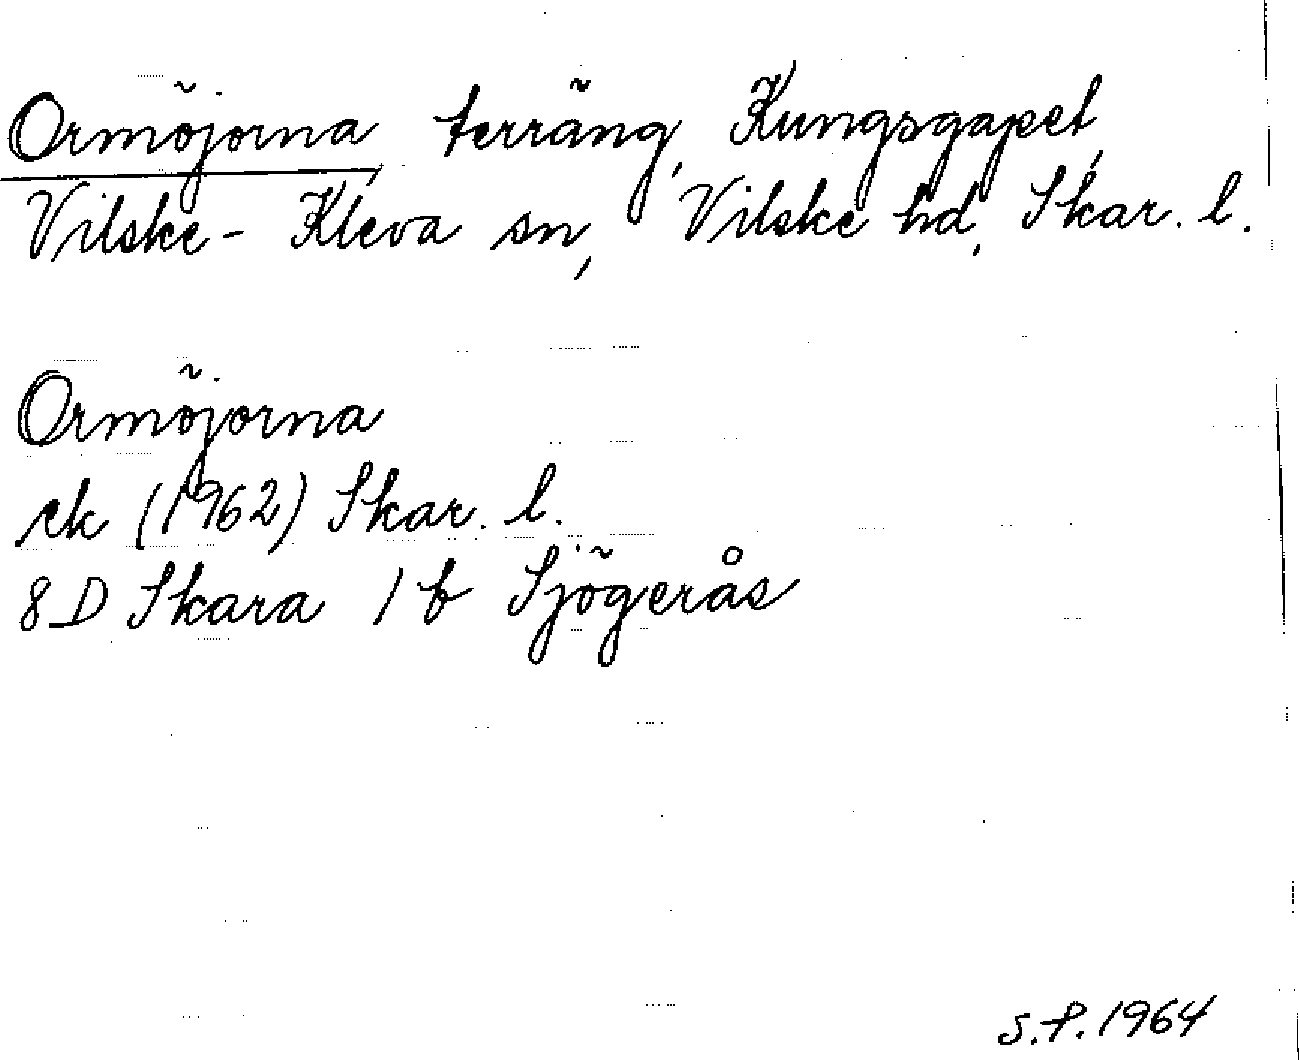 Ormöjorna, terräng, Kungsgapet,
Vilske-Kleva sn, Vilske hd, Skar. l.
Ormöjorna
ek (1962) Skar. l.
8D Skara 1 b Sjögerås
S.P. 1964